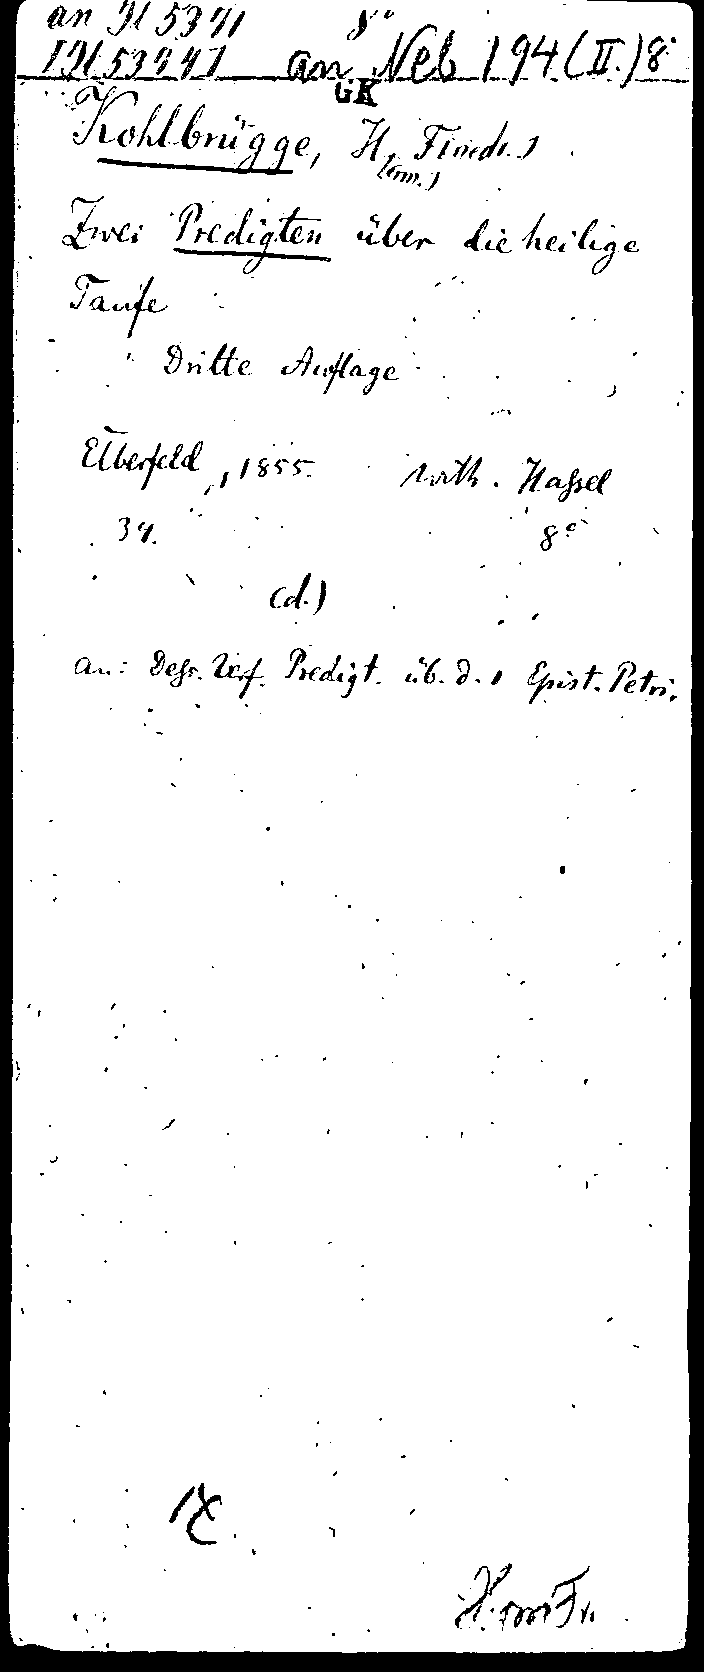 an 8°
an Neb 194 (II.) 8°
GK
Kohlbrügge, H. Friedr.)
Zwei Predigten über die heilige
Taufe
Dritte Auflage
Elberfeld, 1855. Wilh. Hassel
34. 8°
(d.)
an: Dess. Verf. Predigt. üb. d. 1 Epist. Petri.